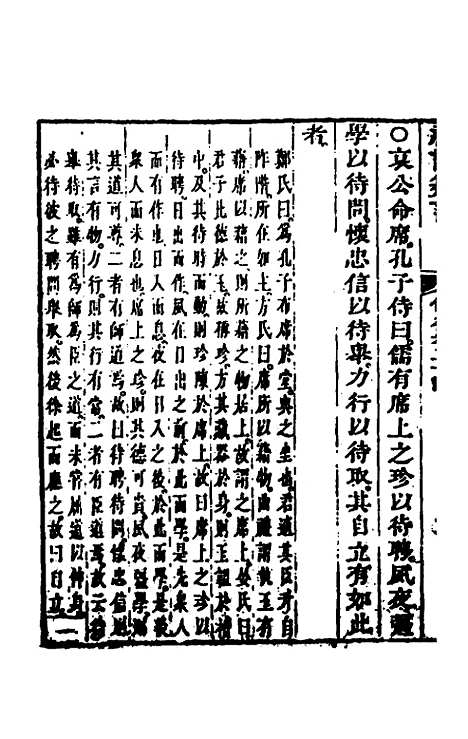 ○哀公命席孔子侍曰儒有席上之珍以待聘夙夜強
學以待問懷忠信以待舉力行以待取其自立有如此
者
鄭氏曰爲孔子布席於堂與之坐也君適其臣升自
阼階所在如主方氏曰席所以藉物曲禮謂執玉有
藉席以藉之則所藉之物居上故謂之席上
君子比德於玉故稱珍方其藏器於身則玉韞於
中及其待時而動則珍陳於席上故曰席上之珍以
待聘日出而作夙在日出之前於此而學是先衆人
而有作入日而息夜在日入之後於此而學是後
衆人而未息也席上之珍則其德可貴夙夜強學
其道可尊二者有師道焉故曰待聘待問懷忠信
其言有物力行則其行有二者有臣道焉故
舉待取雖有爲師爲臣之道而未嘗屈道以伸身
必待彼之聘問舉取然後徐起而應之故曰自立